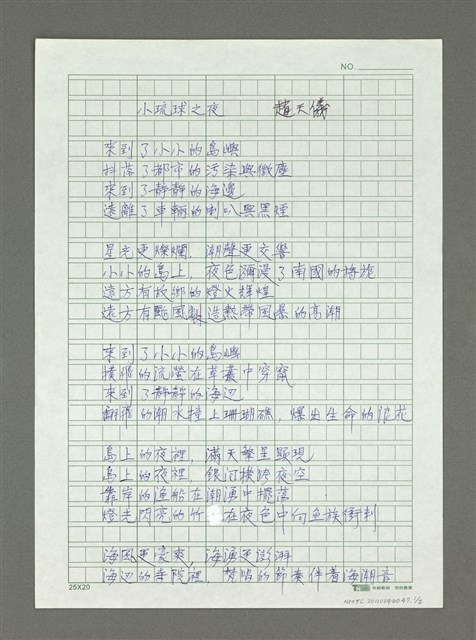 NO.
小琉球之夜 趙天儀
來到了小小的島嶼
抖落了都市的污染與微塵
來到了靜靜的海邊
遠離了車輛的喇叭與黑煙
星光更燦爛,潮聲更交響
小小的島上,夜色瀰漫了南國的旖旎
遠方有故鄉的燈火輝煌
遠方有颱風製造熱帶風暴的高潮
來到了小小的島嶼
撲飛的流螢在草叢中穿梭
來到了靜靜的海邊
翻飛的潮水撞上珊瑚礁,爆出生命的浪花
島上的夜裡,滿天繁星顯現
島上的夜裡,銀河橫跨夜空
靠岸的漁船在潮湧中擺盪
燈光閃亮的竹 在夜色中向魚族衝刺
海風更涼爽,海濤更澎湃
海邊的寺院裡,梵唱的節奏伴著海潮音
25X20